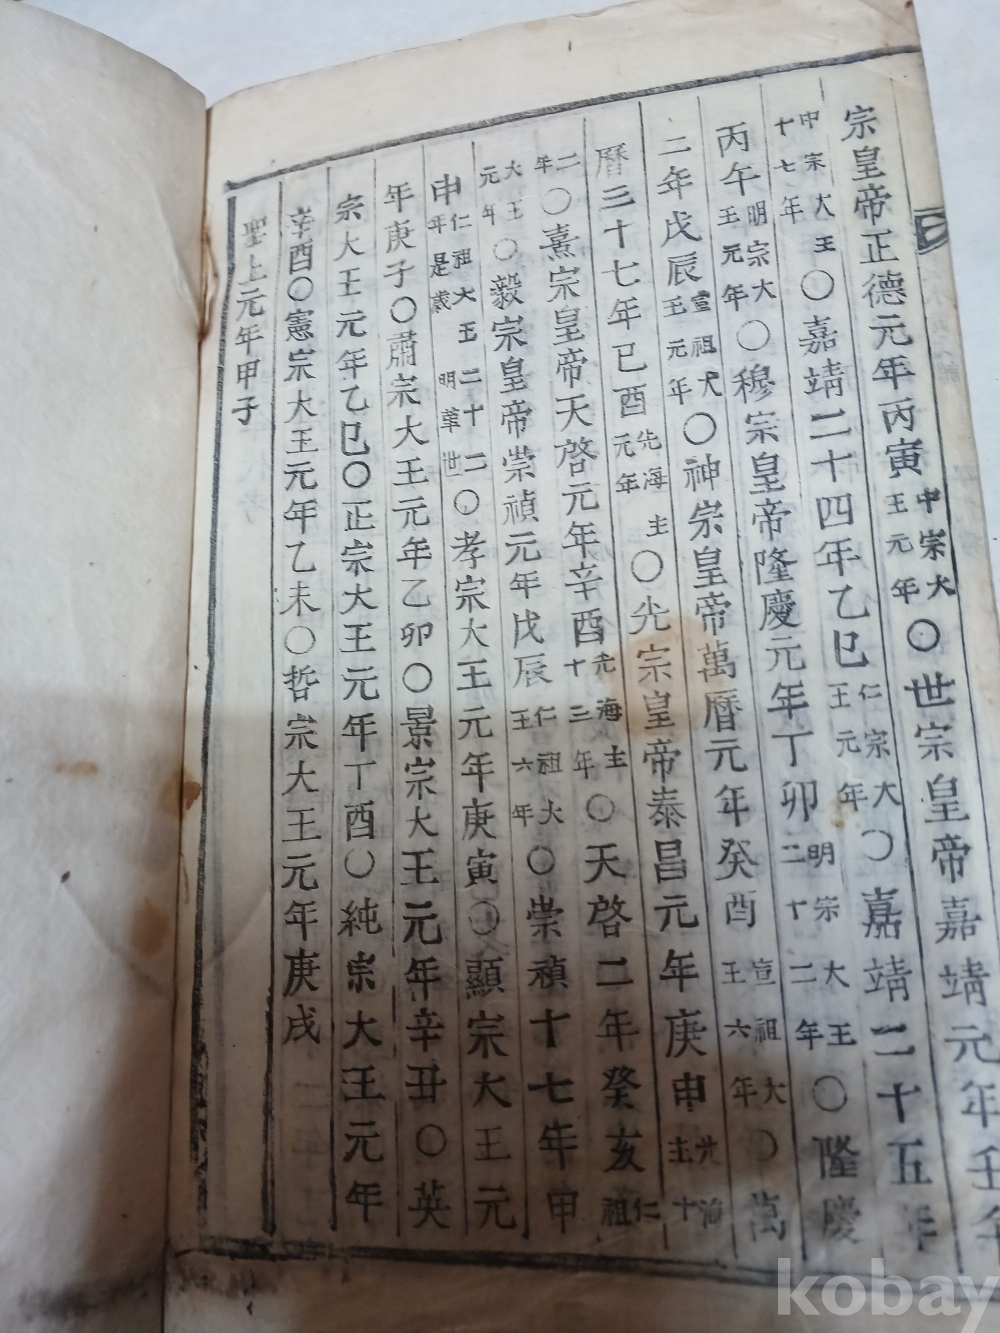 宗皇帝正德元年丙寅中宗大王元年〇世宗皇帝嘉靖元年壬午
中宗大王十七年〇嘉靖二十四年乙巳仁宗大王元年〇嘉靖二十五年
丙午明宗大王元年〇穆宗皇帝隆慶元年丁卯明宗大王二十二年〇隆慶
二年戊辰宣祖大王元年〇神宗皇帝萬曆元年癸酉宣祖大王六年〇萬
曆三十七年己酉光海主元年〇光宗皇帝泰昌元年庚申光海主十
二年〇熹宗皇帝天啓元年辛酉光海主十三年〇天啓二年癸亥仁祖
大王元年〇毅宗皇帝崇禎元年戊辰仁祖大王六年〇崇禎十七年甲
申仁祖大王二十二年是歲明革世〇孝宗大王元年庚寅〇顯宗大王元
年庚子〇肅宗大王元年乙卯〇景宗大王元年辛丑〇英
宗大王元年乙巳〇正宗大王元年丁酉〇純宗大王元年
辛酉〇憲宗大王元年乙未〇哲宗大王元年庚戌
聖上元年甲子
kobay